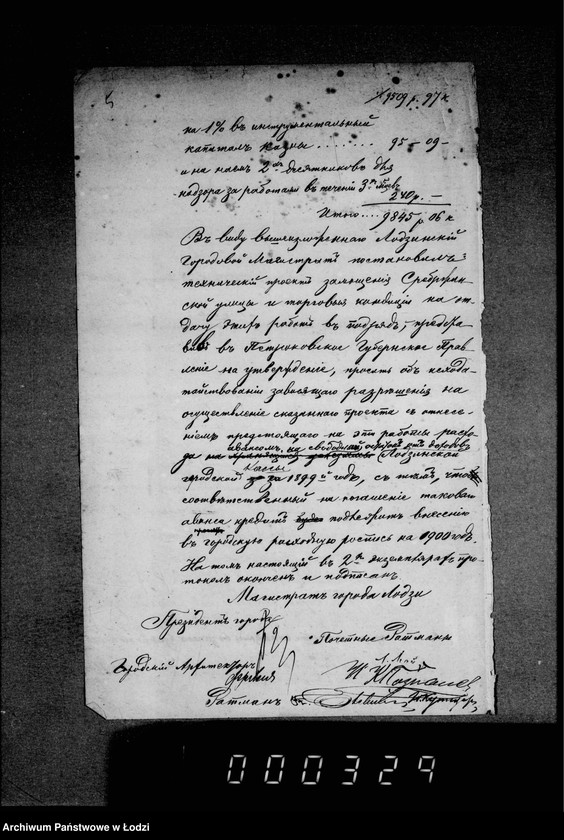 9509 р. 97 к
на 1% въ инструментальный
капиталъ казны ........ 95 - 09 -
и на наемъ 2хъ десятниковъ для
надзора за работами въ теченіи 3хъ мѣс
240 р. -
Итого .... 9845 р 06 к
Въ виду вышеизложеннаго Лодзинскій
Городовой Магистратъ постановилъ:
техническій проектъ замощенія Сребржин-
ской улицы и торговыя кондиціи на от-
дачу этихъ работъ въ подрядъ, предста
вить въ Петроковское Губернское Прав-
леніе на утвержденіе, просить объ исхода-
тайствованіи зависящаго разрѣшенія на
осуществленіе сказаннаго проекта съ отнесе-
ніемъ предстоящаго на эти работы расхо-
авансомъ, на свободный остатокъ отъ доходовъ
да на Лодзинской
кассы
городской за 1899 й годъ, съ тѣмъ, чтобы
соотвѣтственный на погашеніе таковаго
аванса кредитъ подлежитъ внесенію
въ городскую расходную роспись на 1900 годъ.
На томъ настоящій въ 2хъ экземплярахъ про-
токолъ оконченъ и подписанъ
Магистратъ города Лодзи
Президентъ города
Почетные Ратманы
Городской Архитекторъ
Ратманъ
000329
Archiwum Państwowe w Łodzi